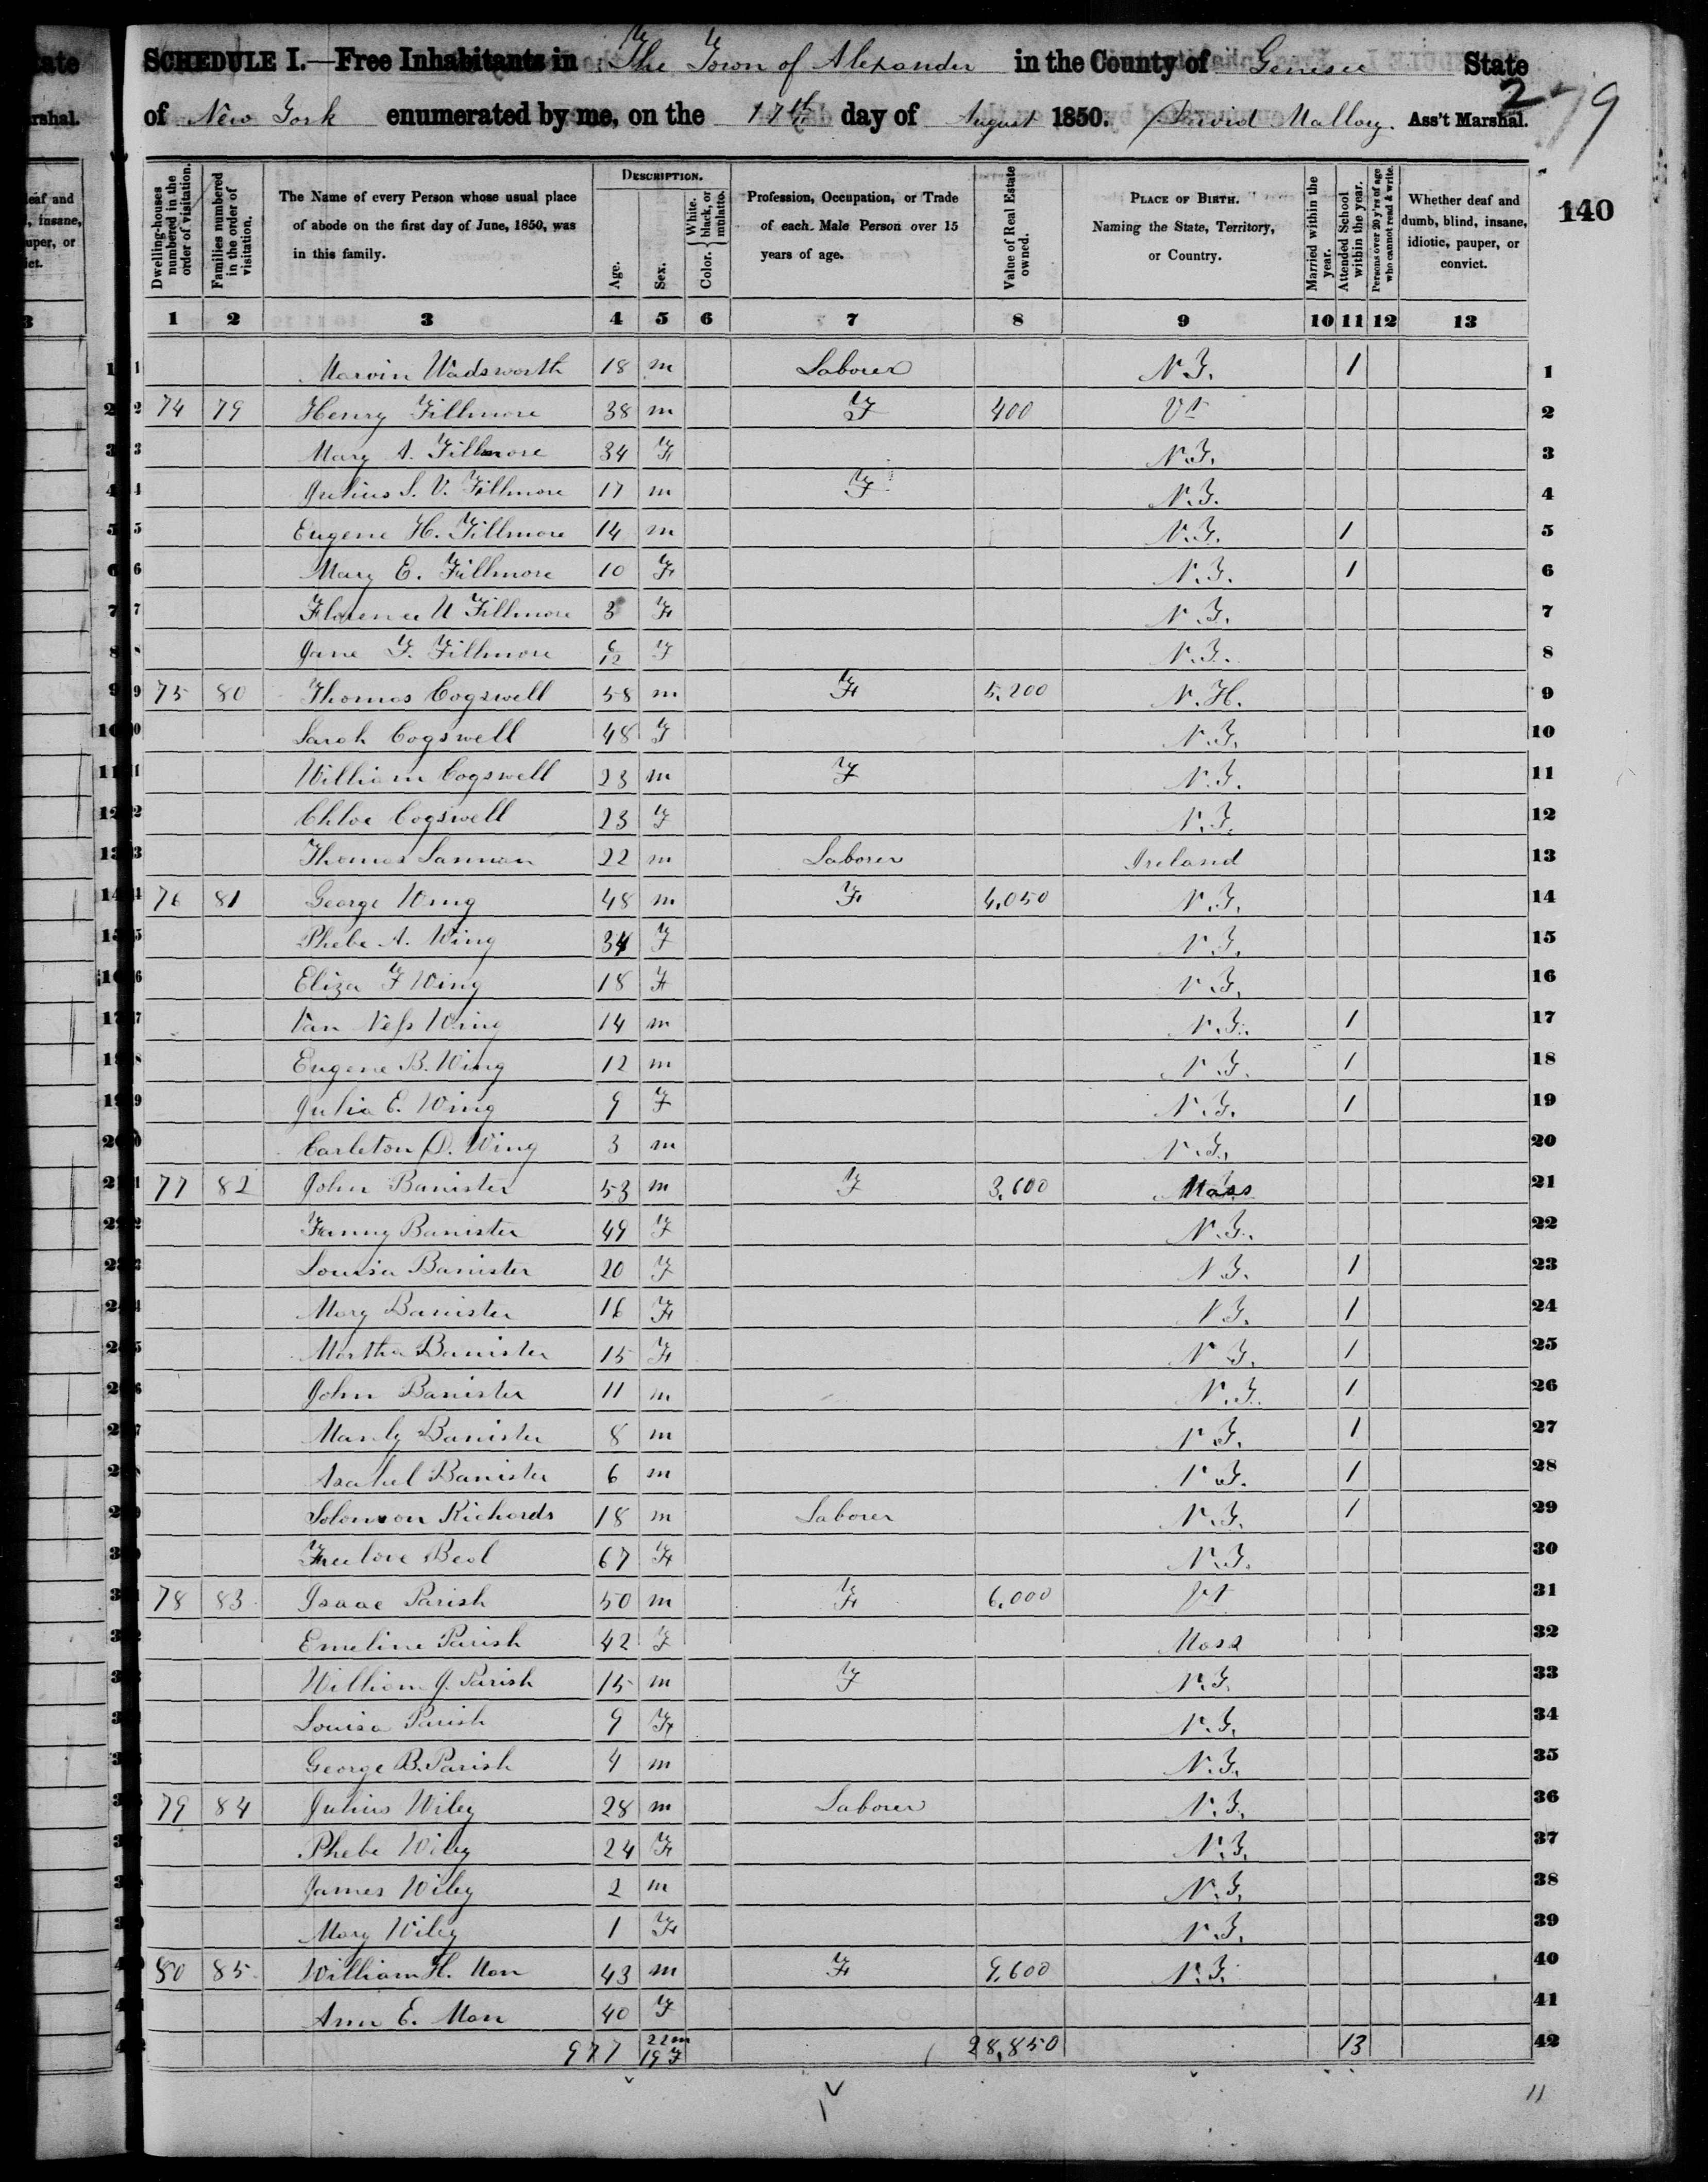 SCHEDULE I.—Free Inhabitants in The Town of Alexander in the County of Genesee State
of New York enumerated by me, on the 17th day of August 1850. David Mallory. Ass't Marshal.
2 79
140
Dwelling-houses numbered in the order of visitation.
Families numbered in the order of visitation.
The Name of every Person whose usual place of abode on the first day of June, 1850, was in this family.
DESCRIPTION.
Age.
Sex.
Color. { White, black, or mulatto.
Profession, Occupation, or Trade of each Male Person over 15 years of age.
Value of Real Estate owned.
PLACE OF BIRTH. Naming the State, Territory, or Country.
Married within the year.
Attended School within the year.
Persons over 20 y'rs of age who cannot read & write.
Whether deaf and dumb, blind, insane, idiotic, pauper, or convict.
1 2 3 4 5 6 7 8 9 10 11 12 13
1 Marvin Wadsworth 18 m Laborer N.Y. 1 1
2 74 79 Henry Fillmore 38 m F 400 Vt 2
3 Mary A. Fillmore 34 F N.Y. 3
4 Julius S. V. Fillmore 17 m F N.Y. 4
5 Eugene H. Fillmore 14 m N.Y. 1 5
6 Mary E. Fillmore 10 F N.Y. 1 6
7 Florence U Fillmore 3 F N.Y. 7
8 Jane F. Fillmore 6/12 F N.Y. 8
9 75 80 Thomas Cogswell 58 m F 5,200 N.H. 9
10 Sarah Cogswell 48 F N.Y. 10
11 William Cogswell 23 m F N.Y. 11
12 Chloe Cogswell 23 F N.Y. 12
13 Thomas Lannan 22 m Laborer Ireland 13
14 76 81 George Wing 48 m F 4,050 N.Y. 14
15 Phebe A. Wing 34 F N.Y. 15
16 Eliza F Wing 18 F N.Y. 16
17 Van Ness Wing 14 m N.Y. 1 17
18 Eugene B. Wing 12 m N.Y. 1 18
19 Julia E. Wing 9 F N.Y. 1 19
20 Carleton D. Wing 3 m N.Y. 20
21 77 82 John Banister 53 m F 3,600 Mass 21
22 Fanny Banister 49 F N.Y. 22
23 Louisa Banister 20 F N.Y. 1 23
24 Mary Banister 16 F N.Y. 1 24
25 Martha Banister 15 F N.Y. 1 25
26 John Banister 11 m N.Y. 1 26
27 Manly Banister 8 m N.Y. 1 27
28 Asahel Banister 6 m N.Y. 1 28
29 Solomon Richards 18 m Laborer N.Y. 1 29
30 Freelove Beal 67 F N.Y. 30
31 78 83 Isaac Parish 50 m F 6,000 Vt 31
32 Emeline Parish 42 F Mass 32
33 William J. Parish 15 m F N.Y. 33
34 Louisa Parish 9 F N.Y. 34
35 George B. Parish 4 m N.Y. 35
36 79 84 Julius Wiley 28 m Laborer N.Y. 36
37 Phebe Wiley 24 F N.Y. 37
38 James Wiley 2 m N.Y. 38
39 Mary Wiley 1 F N.Y. 39
40 80 85 William H. Mon 43 m F 9,600 N.Y. 40
41 Ann E. Mon 40 F 41
42 977 22m 19F 28,850 13 42